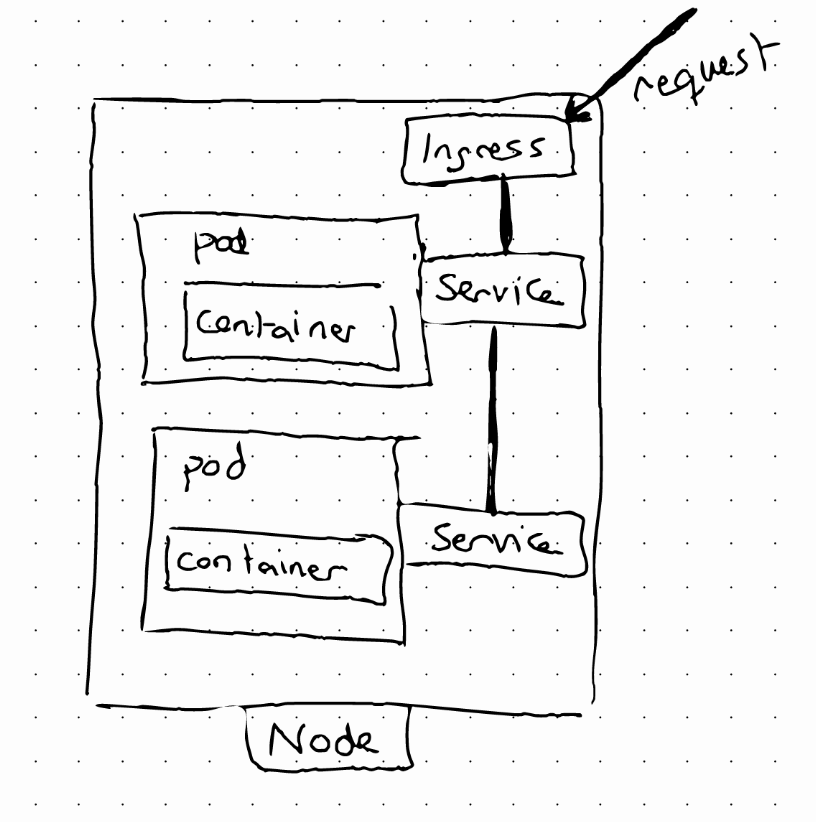 request
Ingress
pod
Service
container
pod
Service
container
Node